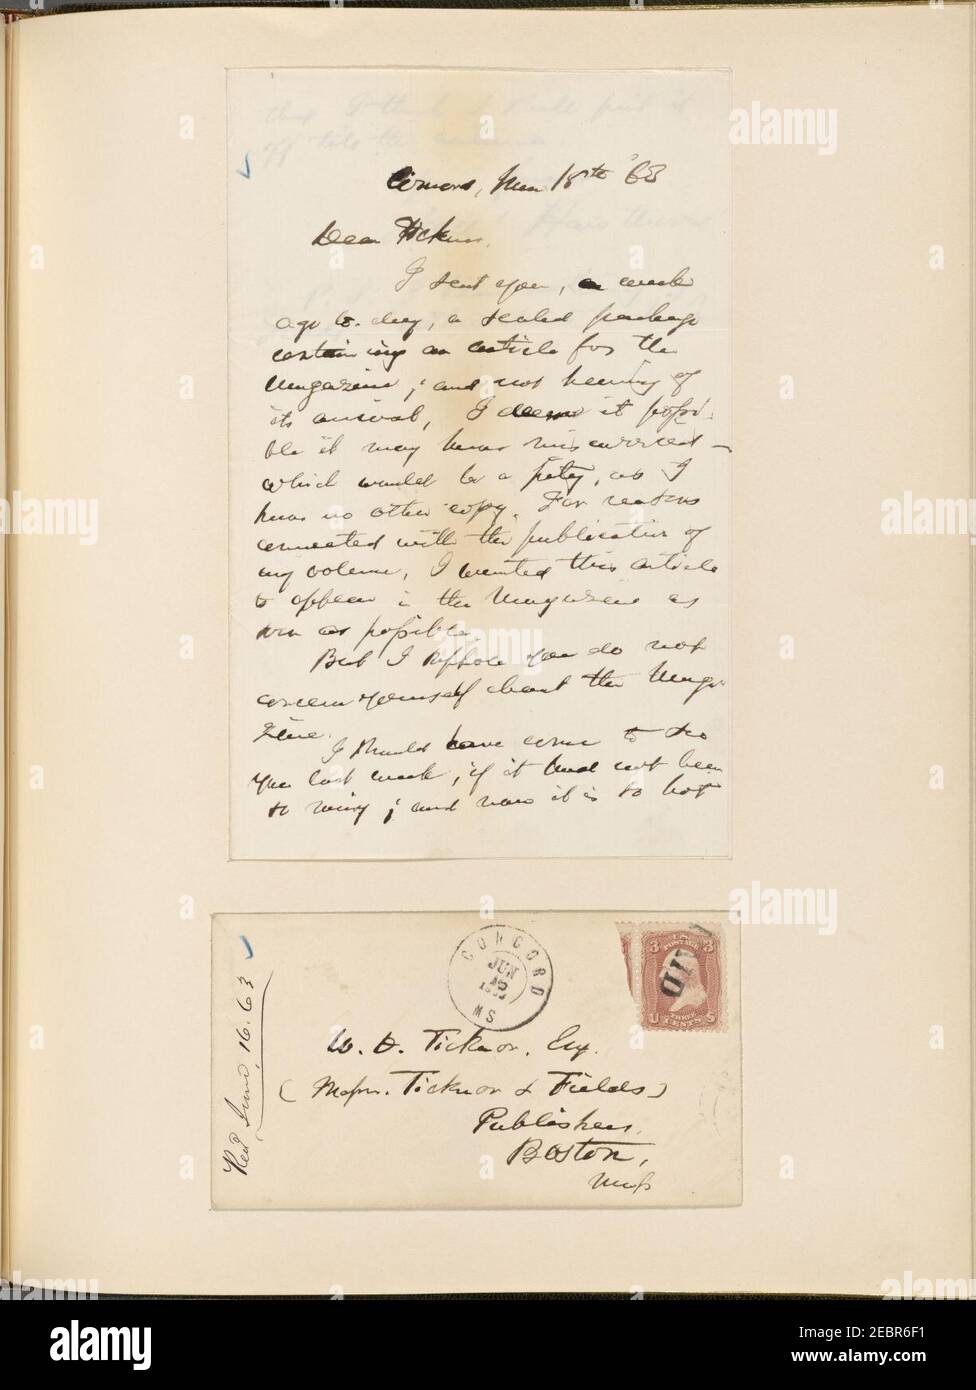 Concord, June 18th '63
Dear Ticknor,
I sent you, a week
ago to-day, a sealed package
containing an article for the
Magazine; and not hearing of
its arrival, I deem it possi-
ble it may have miscarried—
which would be a pity, as I
have no other copy. For reasons
connected with the publication of
my volume, I wanted this article
to appear in the Magazine as
soon as possible.
But I suppose you do not
concern yourself about the Maga-
zine.
I should have come to see
you last week, if it had not been
so rainy; and now it is so hot
Hawthorne
CONCORD
JUN
MS
U.S. POSTAGE
3 3
THREE
CENTS
U S
PAID
W. D. Ticknor, Esq.
(Messrs. Ticknor & Fields)
Publishers,
Boston,
Mass
Recd June, 16. 63
alamy
Image ID: 2EBR6F1
www.alamy.com